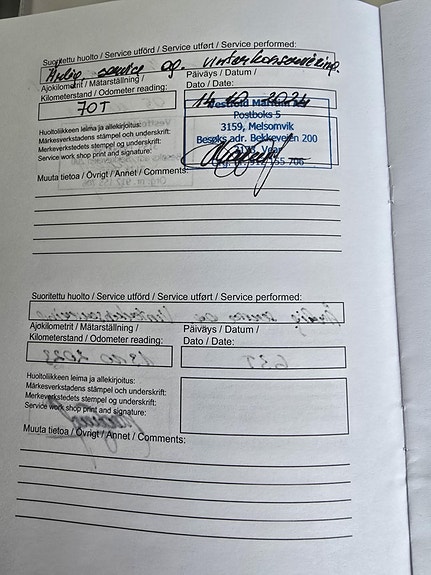 Suoritettu huolto / Service utförd / Service utført / Service performed:
Årlig service og vinterkonservering.
Ajokilometrit / Mätarställning / Päiväys / Datum /
Kilometerstand / Odometer reading: Dato / Date:
70T 14.10.2024
Huoltoliikkeen leima ja allekirjoitus:
Märkesverkstadens stämpel och underskrift:
Merkeverkstedets stempel og underskrift:
Service work shop print and signature:
Vestfold
Postboks 5
3159, Melsomvik
Besøks adr. Bekkeveien 200
Org. nr. 912 155 706
Muuta tietoa / Övrigt / Annet / Comments:
Suoritettu huolto / Service utförd / Service utført / Service performed:
Ajokilometrit / Mätarställning / Päiväys / Datum /
Kilometerstand / Odometer reading: Dato / Date:
Huoltoliikkeen leima ja allekirjoitus:
Märkesverkstadens stämpel och underskrift:
Merkeverkstedets stempel og underskrift:
Service work shop print and signature:
Muuta tietoa / Övrigt / Annet / Comments: